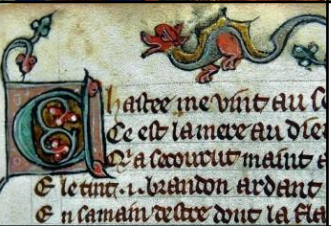 Chastee me vint au se
Ce est la mere au die
Q'a secourut maint a
E le tint .i. brandon ardant
E n sa main destre dont la fla